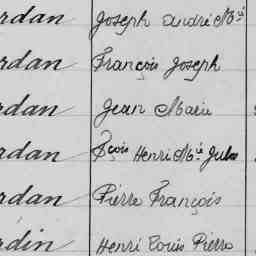 rdan Joseph André M.ie
rdan François Joseph
rdan Jean Marie
rdan Fçois Henri M.ie Jules
rdan Pierre François
rdin Henri Louis Pierre